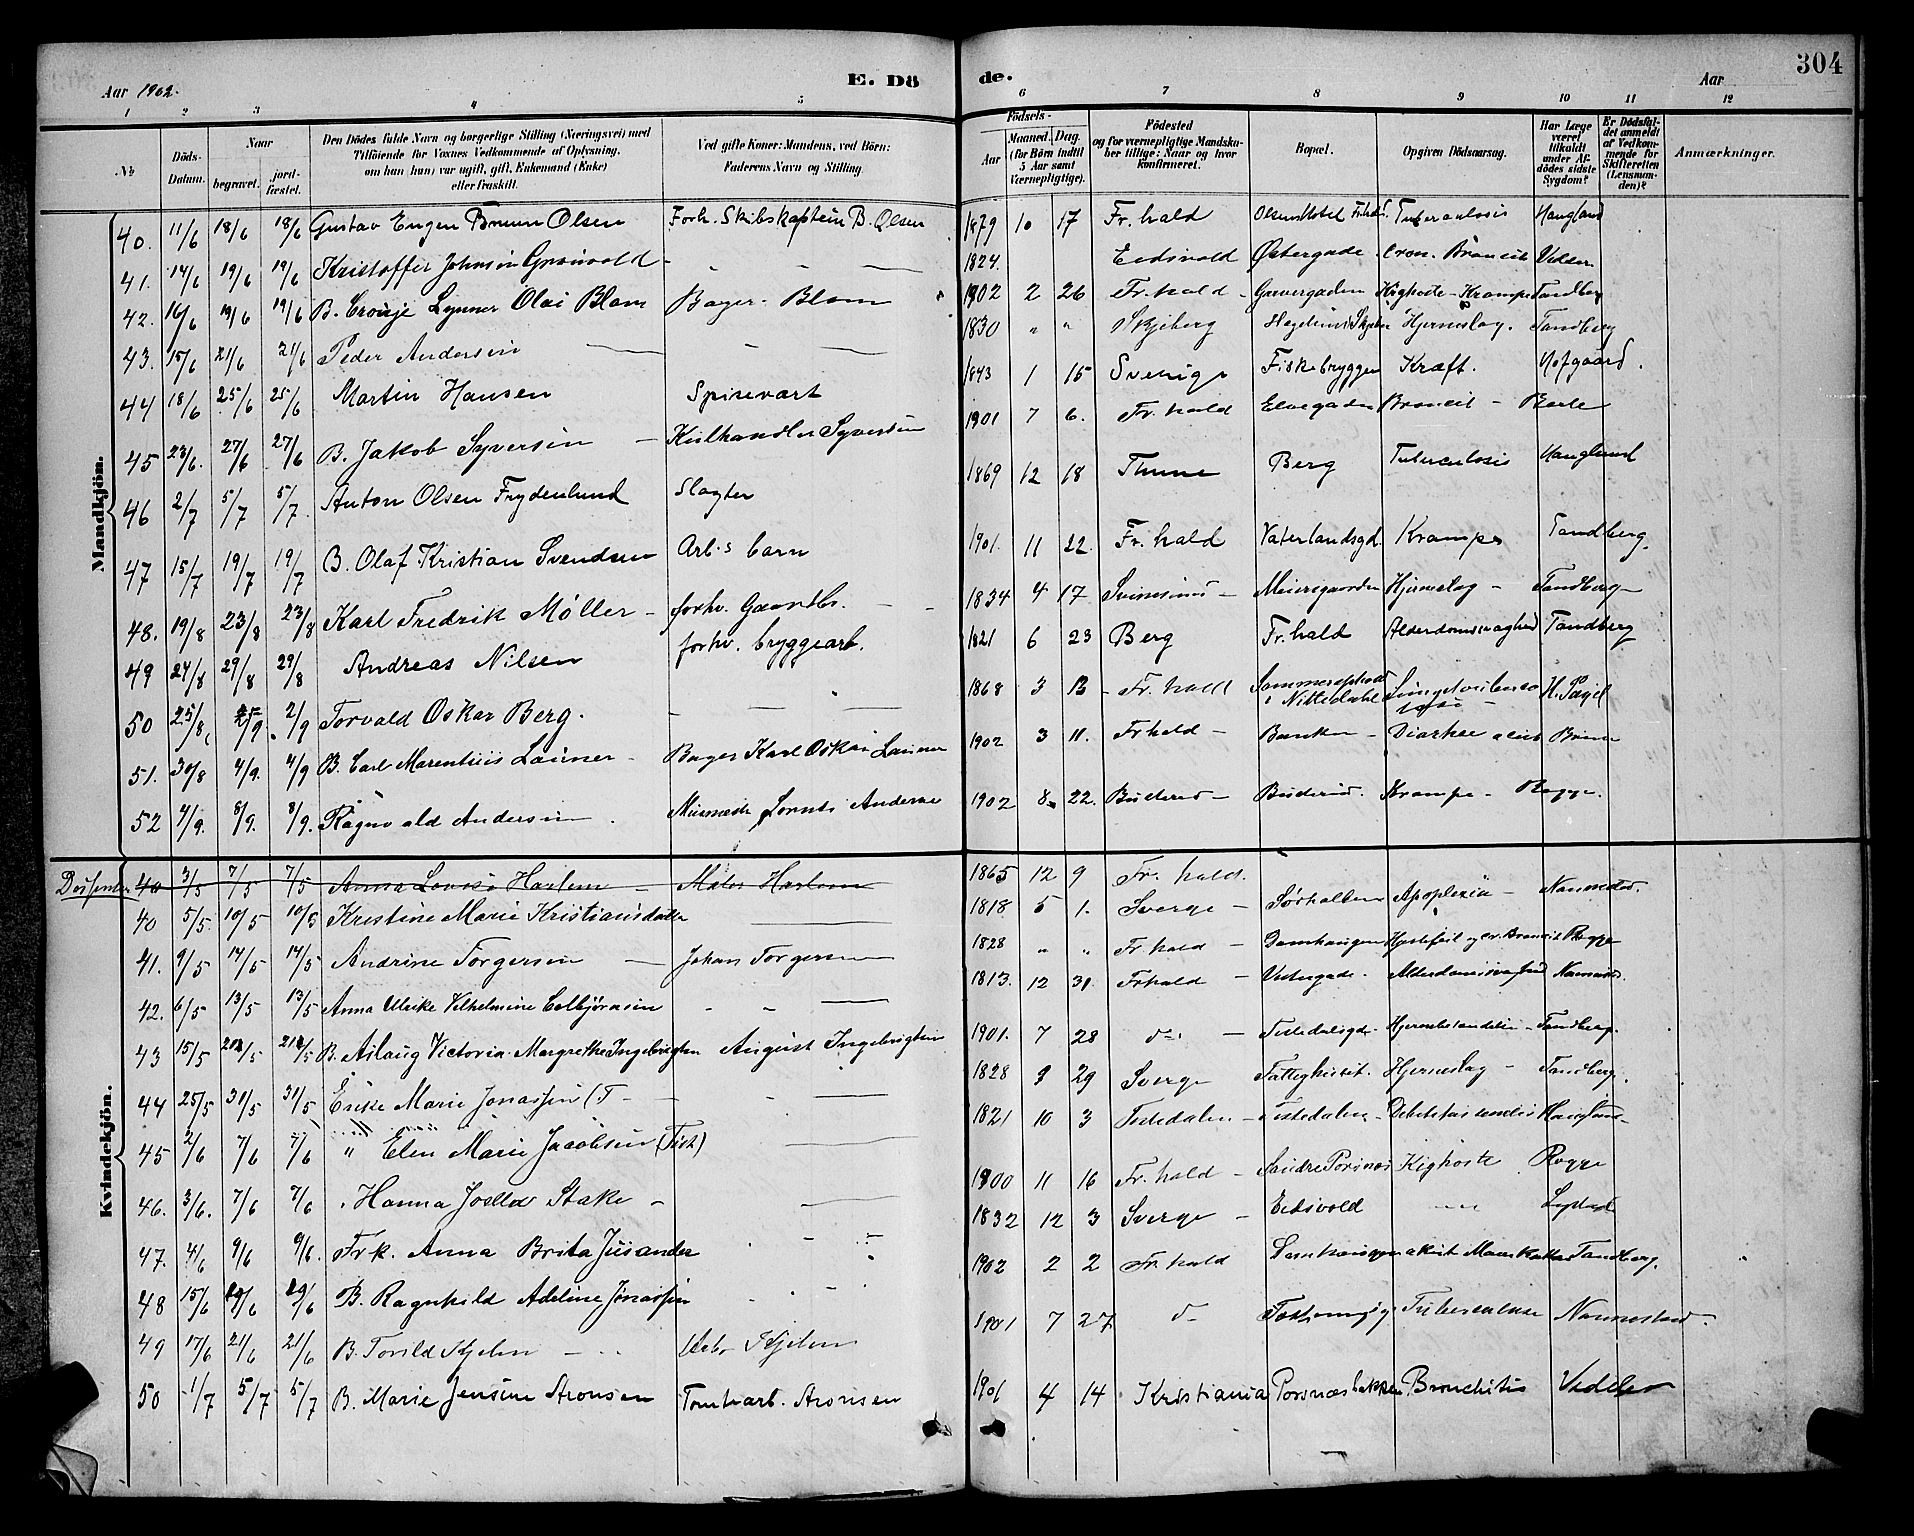 Aar 1902.
E. Dö
de.
Aar
304
1 2 3 4 5 6 7 8 9 10 11 12
No
Döds-Datum.
Naar
begravet.
jord-fæstet.
Den Dödes fulde Navn og borgerlige Stilling (Næringsvei) med Tilföiende for Voxnes Vedkommende af Oplysning, om han (hun) var ugift, gift, Enkemand (Enke) eller fraskilt.
Ved gifte Koner: Mandens, ved Börn: Faderens Navn og Stilling.
Födsels-
Aar
Maaned. Dag.
(for Börn indtil 5 Aar samt Værnepligtige).
Födested og for værnepligtige Mandskaber tillige: Naar og hvor konfirmeret.
Bopæl.
Opgiven Dödsaarsag.
Har Læge været tilkaldt under Afdödes sidste Sygdom?
Er Dödsfaldet anmeldt af Vedkommende for Skifteretten (Lensmanden)?
Anmærkninger.
Mandkjön.
40. 11/6 18/6 18/6 Gustav Eugen Bruun Olsen Forh. Skibskaptein B. Olsen 1879 10 17 Fr. hald Tuberculosis Haugland
41. 14/6 19/6 19/6 Kristoffer Johnsen Grønvold 1824. Eidsvold Østergade Cron. Broncit Vedeler
42. 16/6 19/6 19/6 B. Cronje Lynner Olai Blom Bager Blom 1902 2 26 Fr. hald Gravergaden Kighoste - Krampe Tandberg
43. 15/6 21/6 21/6 Peder Andersen 1830 " " Skjeberg Hjerneslag. Tandberg
44 18/6 25/6 25/6 Martin Hansen Spisevært 1843 1 15 Sverige Fiskebryggen Kræft. Hofgaard.
45 23/6. 27/6 27/6 B. Jakob Syversen Kulhandler Syversen 1901 7 6. Fr. hald Elvegaden Broncit
46 2/7 5/7 5/7 Anton Olsen Frydenlund Slagter 1869 12 18 Thune Berg Tuberculosis Haugland
47 15/7 19/7 19/7 B. Olaf Kristian Svendsen Arb.s barn 1901. 11 22. Fr. hald Vaterlandsgd. Krampe Tandberg.
48. 19/8 23/8 23/8 Karl Fredrik Møller forhv. Gaardbr. 1834 4 17 Svinesund Meiersgaarden Hjerneslag Tandberg
49 24/8 29/8 29/8 Andreas Nilsen forhv. bryggearb. 1821 6 23 Berg Fr. hald Alderdomssvaghed Tandberg
50 25/8 2/9 2/9 Torvald Oskar Berg. 1868 3 13 Fr. hald Nittedalen
51. 30/8 4/9. 4/9 B. Carl Marentius Launer Bager Karl Oskar Launer 1902 3 11. Fr hald Banken
52 4/9. 8/9. 8/9. Ragnvald Andersen 1902 8 22. Buderød Buderød. Krampe Rogge.
Kvindekjön.
40 3/5 7/5 7/5 Anna Lovise Harlem Maler Harlem 1865 12 9 Fr. hald.
40 5/5. 10/5 10/5 Kristine Marie Kristiansdatter 1818 5 1. Sverge Sørhalden Apoplexia Nannestad.
41. 9/5 14/5 14/5 Andrine Torgersen Johan Torgersen 1828 " " Fr hald Damhaugen Hjertefeil og cr. Broncit Rogge
42. 6/5 13/5 13/5 Anna Ulrike Vilhelmine Colbjørnsen 1813. 12 31. Frhald Vestergade. Alderdomssvaghed Nannestad.
43 15/5 B. Aslaug Victoria Margrethe Ingebrigtsen August Ingebrigtsen 1901. 7 28 Tistedalsgd. Hjernebetændelse Tandberg.
44 25/5 31/5 31/5 Enke Marie Jonassen (T 1828 9 29 Sverge Fattighuset. Hjerneslag Tandberg.
45 2/6 7/6 7/6 " Elen Marie Jacobsen (Tist) 1821 10 3 Tistedalen Tistedalen Haugland
46. 3/6. 7/6 7/6 Hanna Joella Stake 1900 11 16 Fr. hald Søndre Porsnæs Kighoste Rogge
47. 4/6 9/6 9/6. Frk. Anna Brita Jusander 1832 12 3 Sverge Eidsvold Lystad
48 15/6 19/6 B. Ragnhild Adeline Jonassen 1902 2 2 Fr. hald Damhaugen Tandberg.
49 17/6 21/6 21/6 B. Torild Kjelen Kjelen 1901 7 27 Tuberculose Nannestad.
50 1/7 5/7 5/7 B. Marie Jensine Aronsen Tomtearb. Aronsen 1901 4 14 Kristiania Porsnæsbakken Bronchitis Vedeler